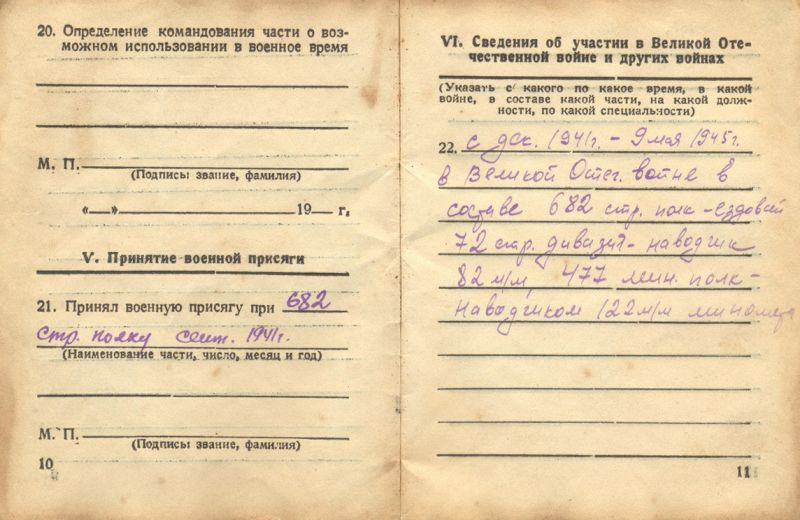 20. Определение командования части о воз-
можном использовании в военное время
М. П.
(Подписы звание, фамилия)
«—» 19— г.
V. Принятие военной присяги
21. Принял военную присягу при 682
стр. полку сент. 1941г.
(Наименование части, число, месяц и год)
М. П.
(Подписы звание, фамилия)
10
VI. Сведения об участии в Великой Оте-
чественной войне и других войнах
(Указать с какого по какое время, в какой
войне, в составе какой части, на какой долж-
ности, по какой специальности)
22. с дек. 1941г. – 9 мая 1945г.
в Великой Отег. войне в
составе 682 стр. полк – ездовой
72 стр. дивизия – наводчик
82 м/м, 477 мин. полк –
наводчиком 122 м/м миномета
11